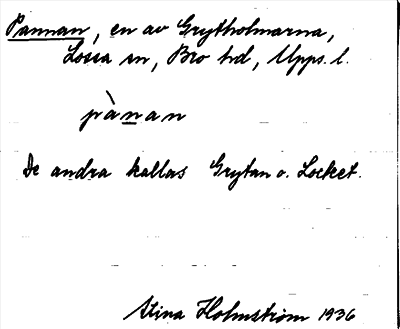 Pannan, en av Grytholmarna,
Lossa sn, Bro hd, Upps. l.
pànan
De andra kallas Grytan o. Locket.
Stina Holmström 1936